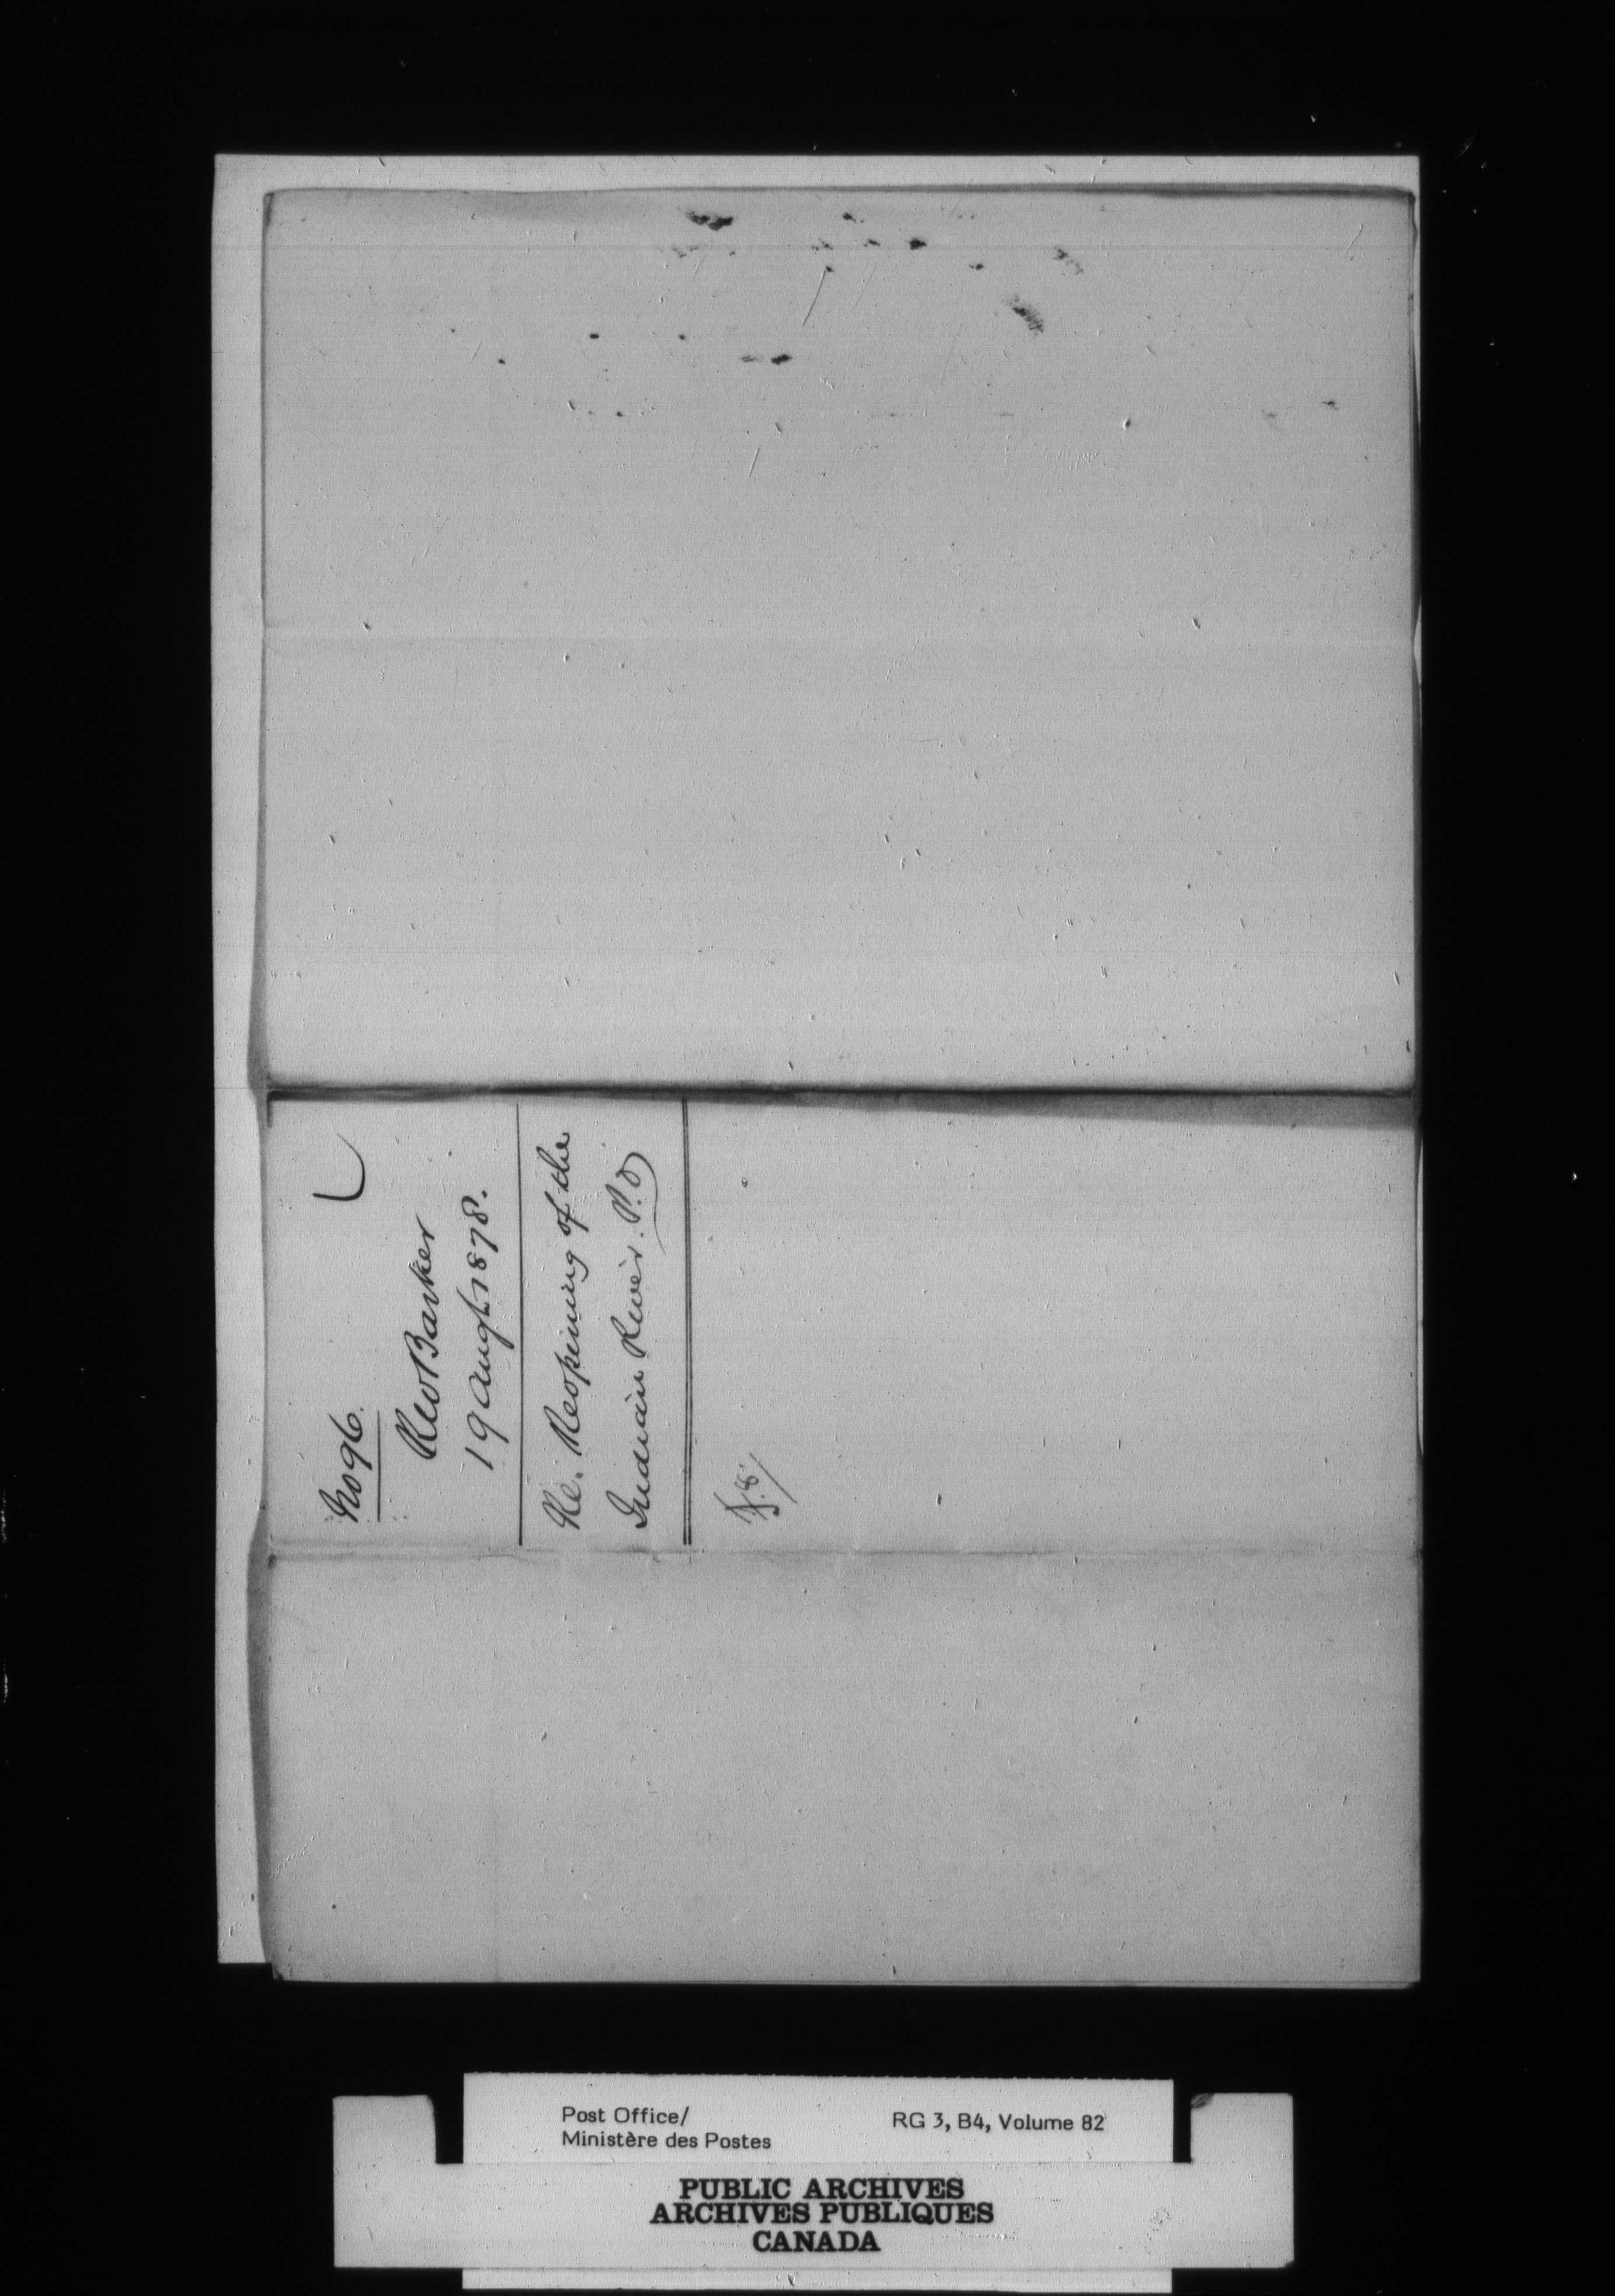 No 96.
RW Barker
19 Augt 1878.
Re. Reopening of the
Indian River. P.O
Post Office/
Ministère des Postes
RG 3, B4, Volume 82
PUBLIC ARCHIVES
ARCHIVES PUBLIQUES
CANADA